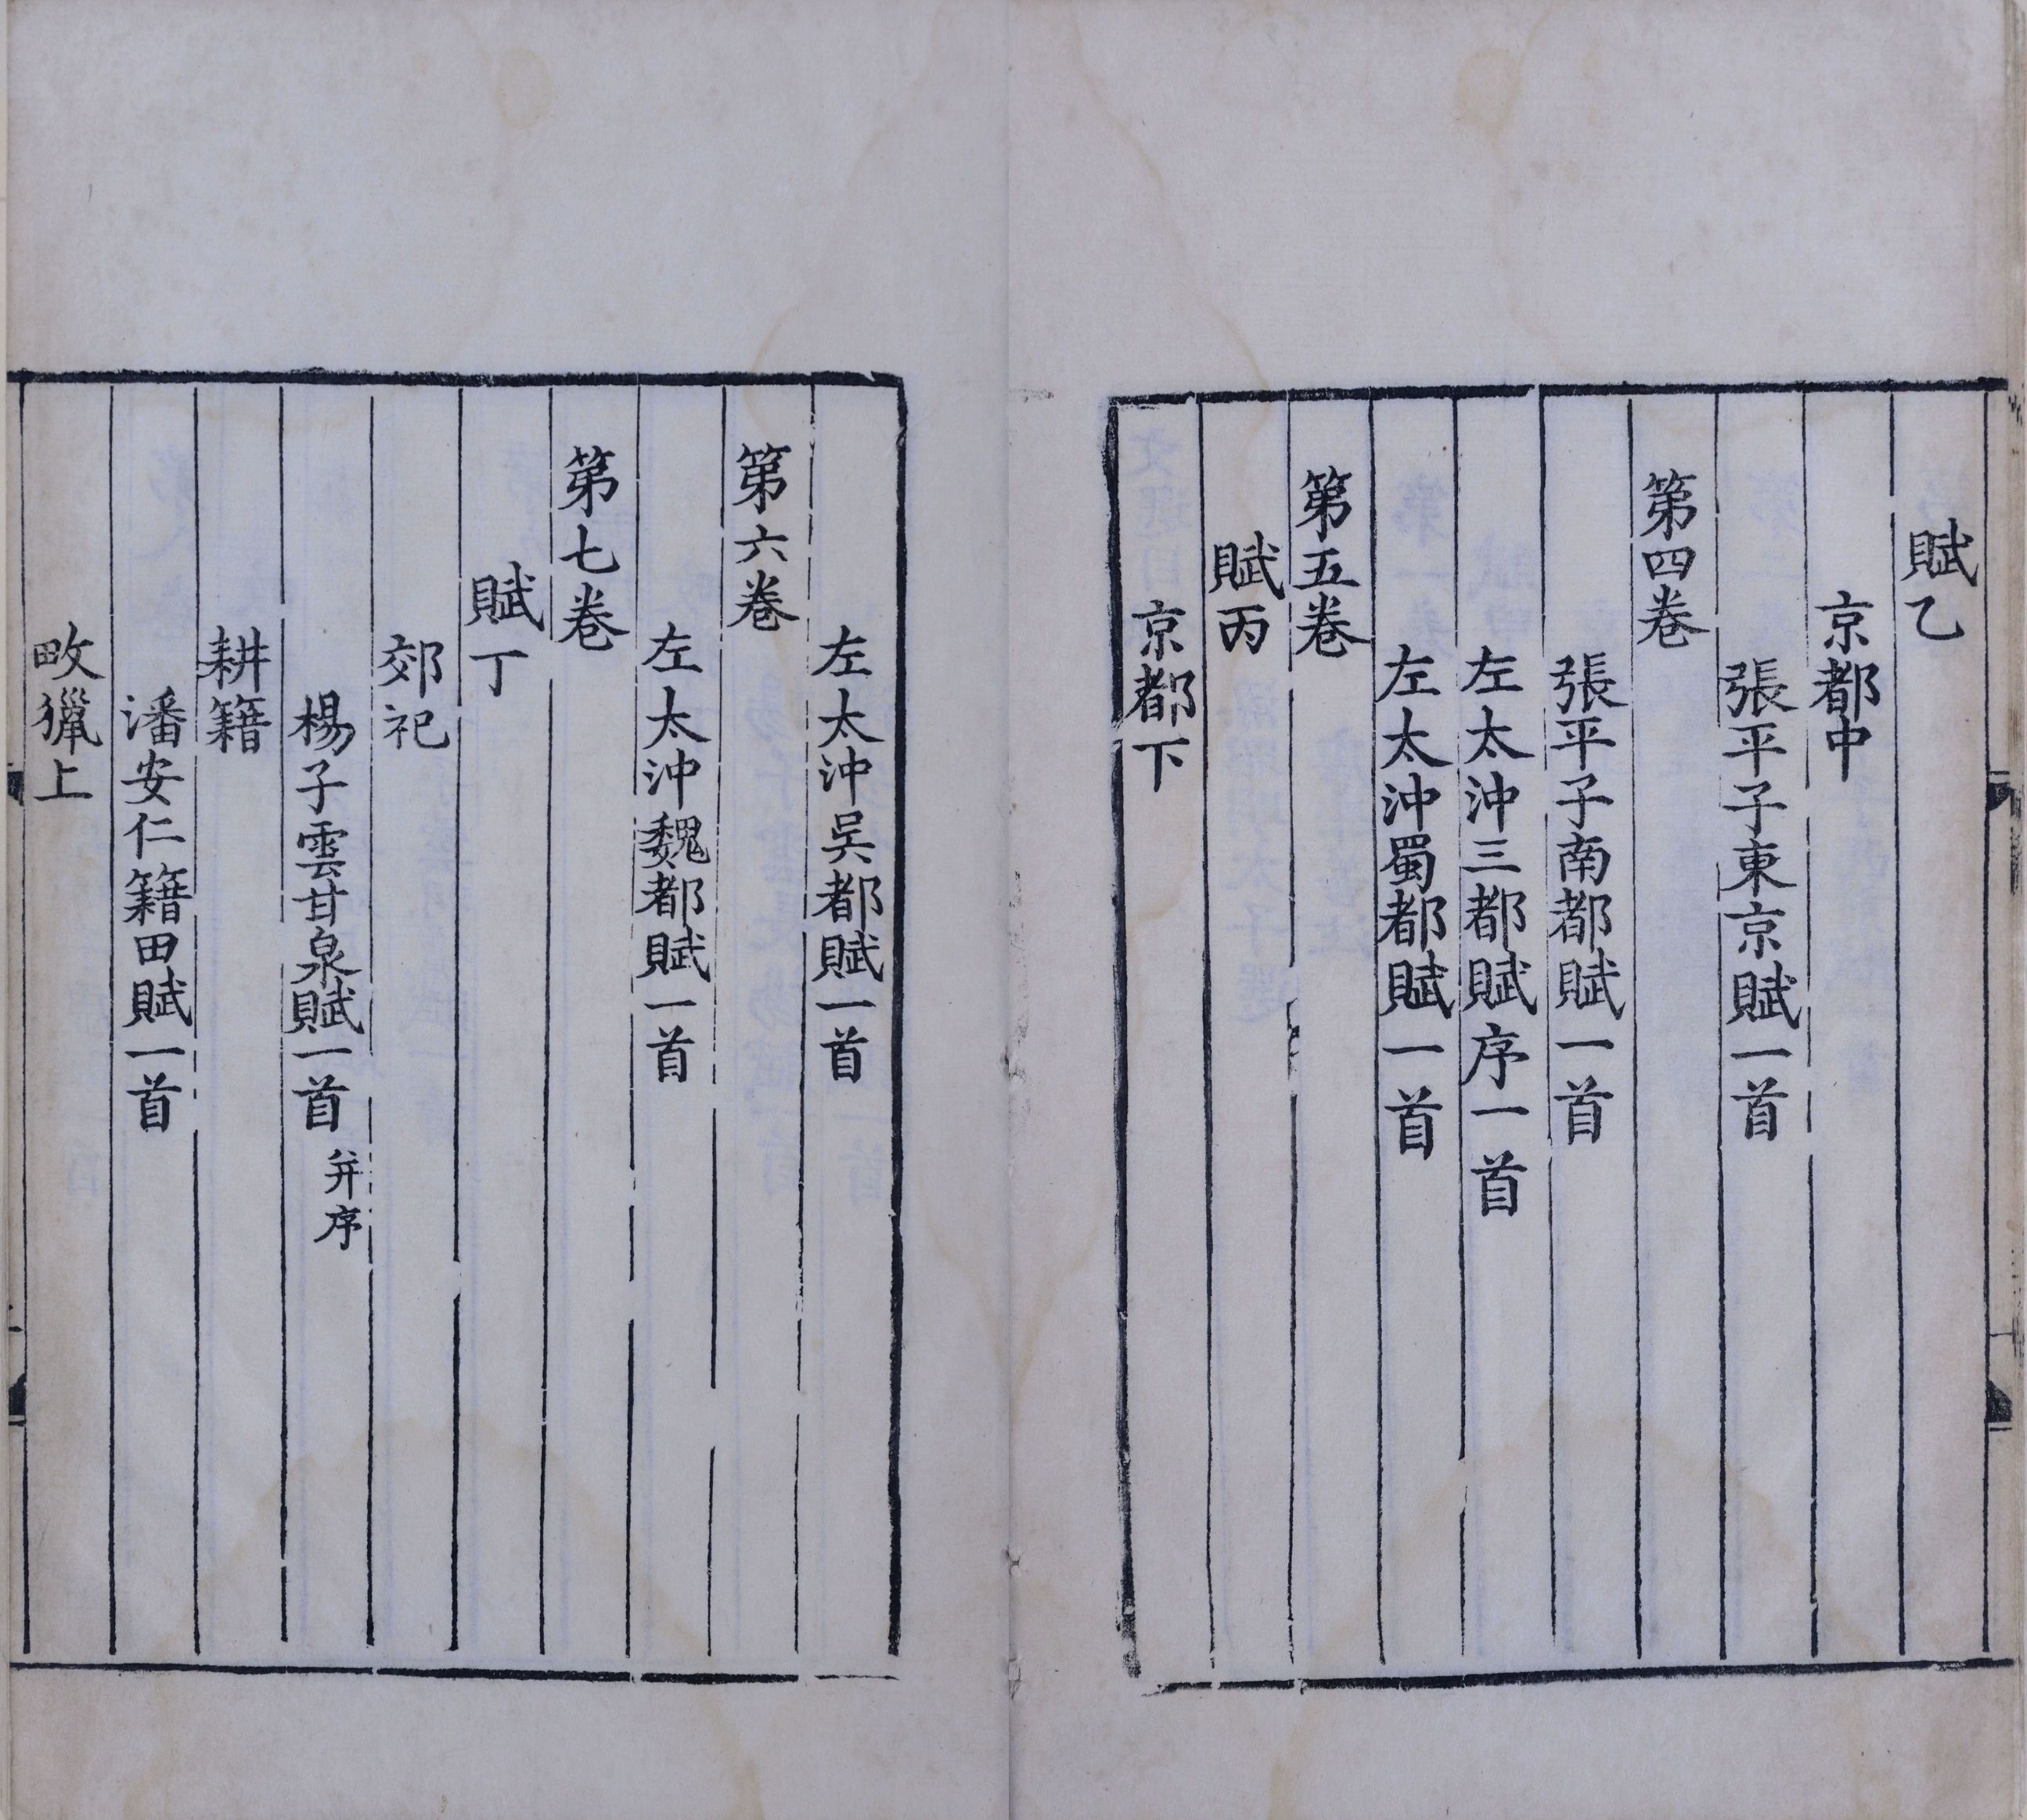 賦乙
京都中
張平子東京賦一首
第四卷
張平子南都賦一首
左太沖三都賦序一首
左太沖蜀都賦一首
第五卷
賦丙
京都下
左太沖吳都賦一首
第六卷
左太沖魏都賦一首
第七卷
賦丁
郊祀
楊子雲甘泉賦一首并序
耕籍
潘安仁籍田賦一首
畋獵上